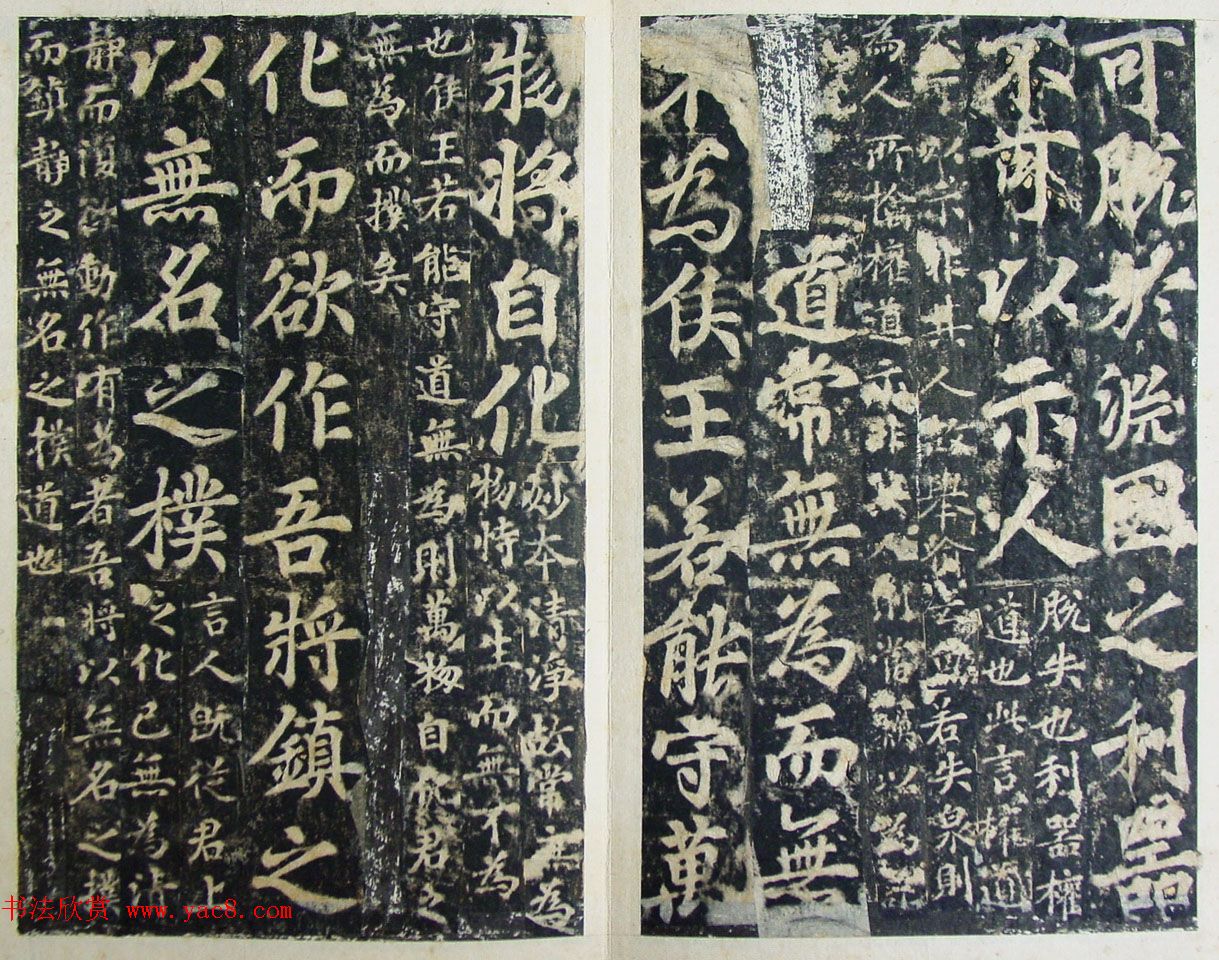 可脫於淵國之利器
不可以示人
脫失也利器權
道也此言權道
不可以示非其人故舉
若失泉則
為人所擒權道示非其人則
以為
道常無為而無
不為侯王若能守萬
物將自化
妙本清淨故常無為
物恃以生而無不為
也侯王若能守道無為則萬物自化君之
無為而撲矣
化而欲作吾將鎮之
以無名之樸
言人既從君上
之化已無為清
靜而復欲動作有為者吾將以無名之樸
而鎮靜之無名之樸道也
书法欣赏 www.yac8.com